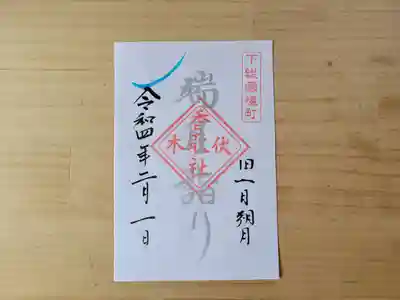 下総國境町
旧一日朔月
詣り
香取社
伏木
令和四年二月一日